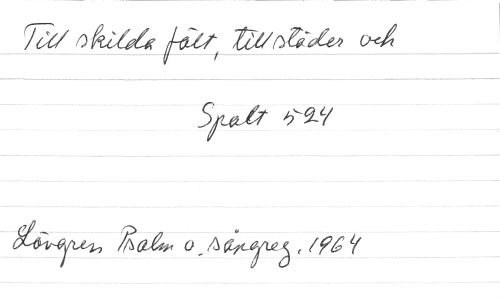 Till skilda fält, till städer och
Spalt 524
Lövgren Psalm o. sångreg. 1964